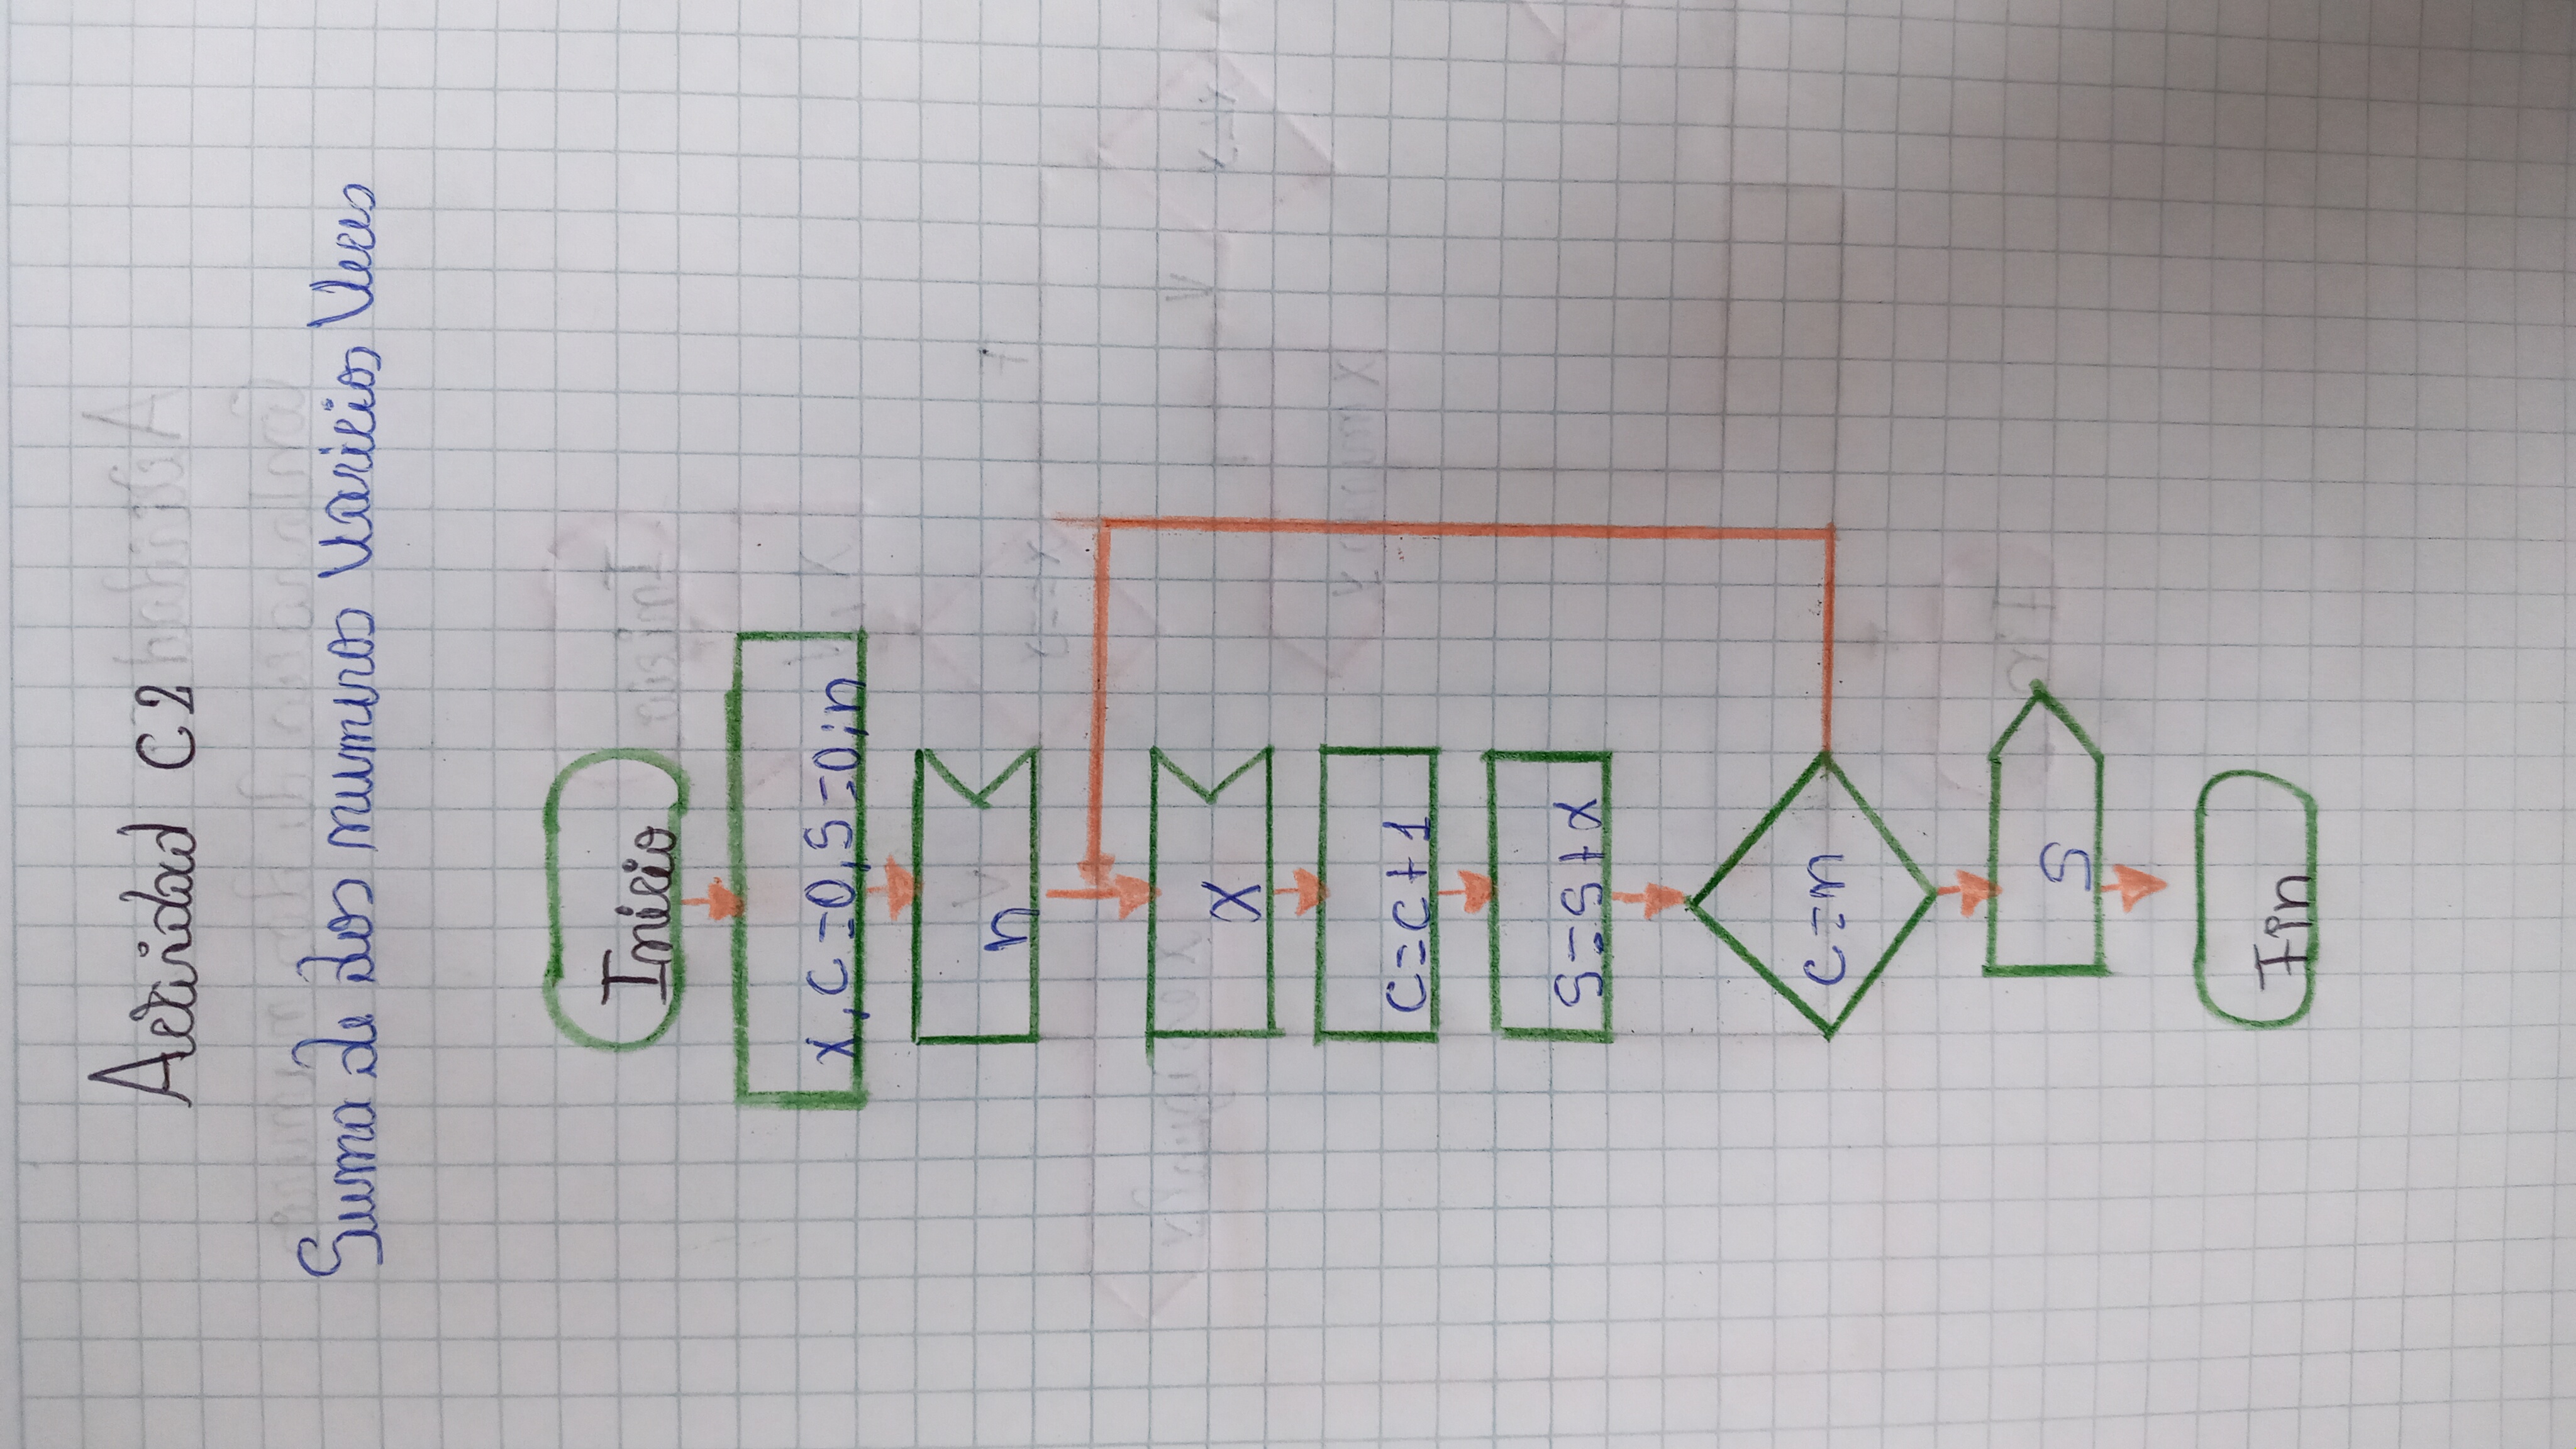 Actividad C2
Suma de dos numeros varicios Veces
Inicio
x, C=0, S=0; n
n
X
C=C+1
S=S+X
C=n
S
Fin